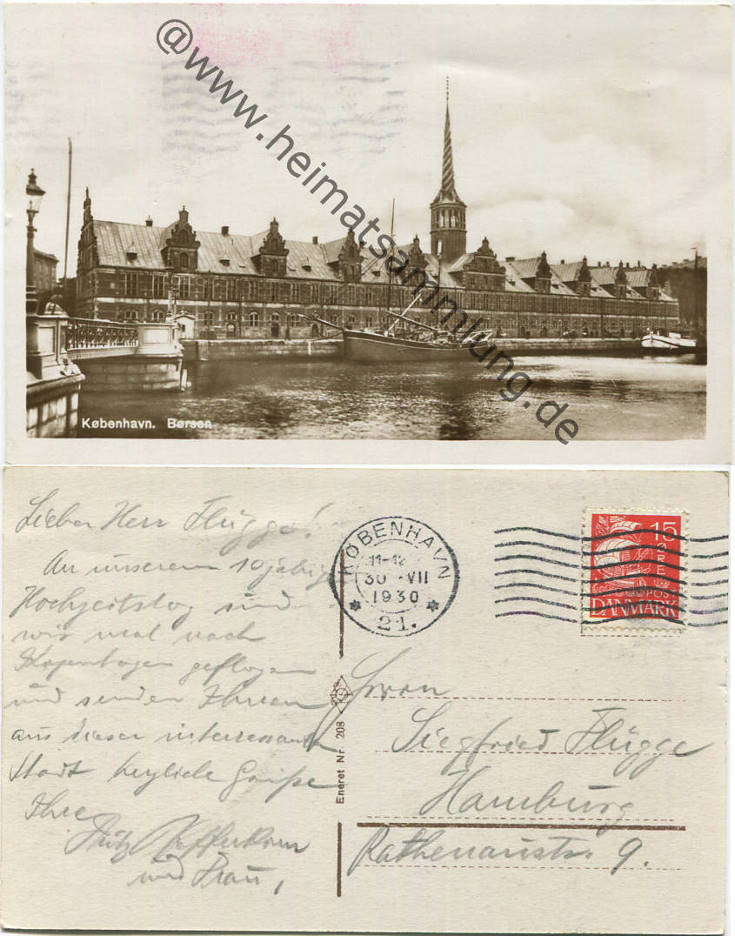 @www.heimatsammlung.de
København. Børsen
Lieber Herr Flügge!
An unserem 10 jährig
Hochzeitstag sind
wir mal nach
Kopenhagen geflogen
und senden Ihnen
aus dieser interessanten
Stadt herzliche Grüße
Ihre
Fritz
und Frau,
KØBENHAVN
11-12
30-VII
1930
* 21. *
15
ØRE
POST
DANMARK
Eneret Nr. 208
Herrn
Siegfried Flügge
Hamburg
Rathenaustr. 9.